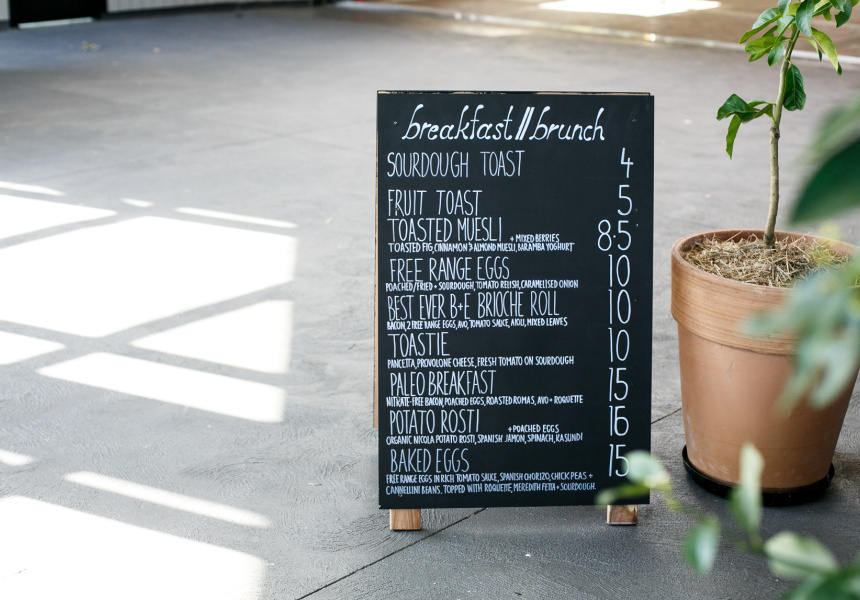 breakfast // brunch
SOURDOUGH TOAST 4
FRUIT TOAST 5
TOASTED MUESLI + MIXED BERRIES 8.5
TOASTED FIG, CINNAMON & ALMOND MUESLI, BARAMBA YOGHURT
FREE RANGE EGGS 10
POACHED/FRIED + SOURDOUGH, TOMATO RELISH, CARAMELISED ONION
BEST EVER B+E BRIOCHE ROLL 10
BACON, 2 FREE RANGE EGGS, AVO, TOMATO SAUCE, AIOLI, MIXED LEAVES
TOASTIE 10
PANCETTA, PROVOLONE CHEESE, FRESH TOMATO ON SOURDOUGH
PALEO BREAKFAST 15
NITRATE-FREE BACON, POACHED EGGS, ROASTED ROMAS, AVO + ROQUETTE
POTATO ROSTI + POACHED EGGS 16
ORGANIC NICOLA POTATO ROSTI, SPANISH JAMON, SPINACH, KASUNDI
BAKED EGGS 15
FREE RANGE EGGS IN RICH TOMATO SAUCE, SPANISH CHORIZO, CHICK PEAS +
CANNELLINI BEANS. TOPPED WITH ROQUETTE, MEREDITH FETTA + SOURDOUGH.